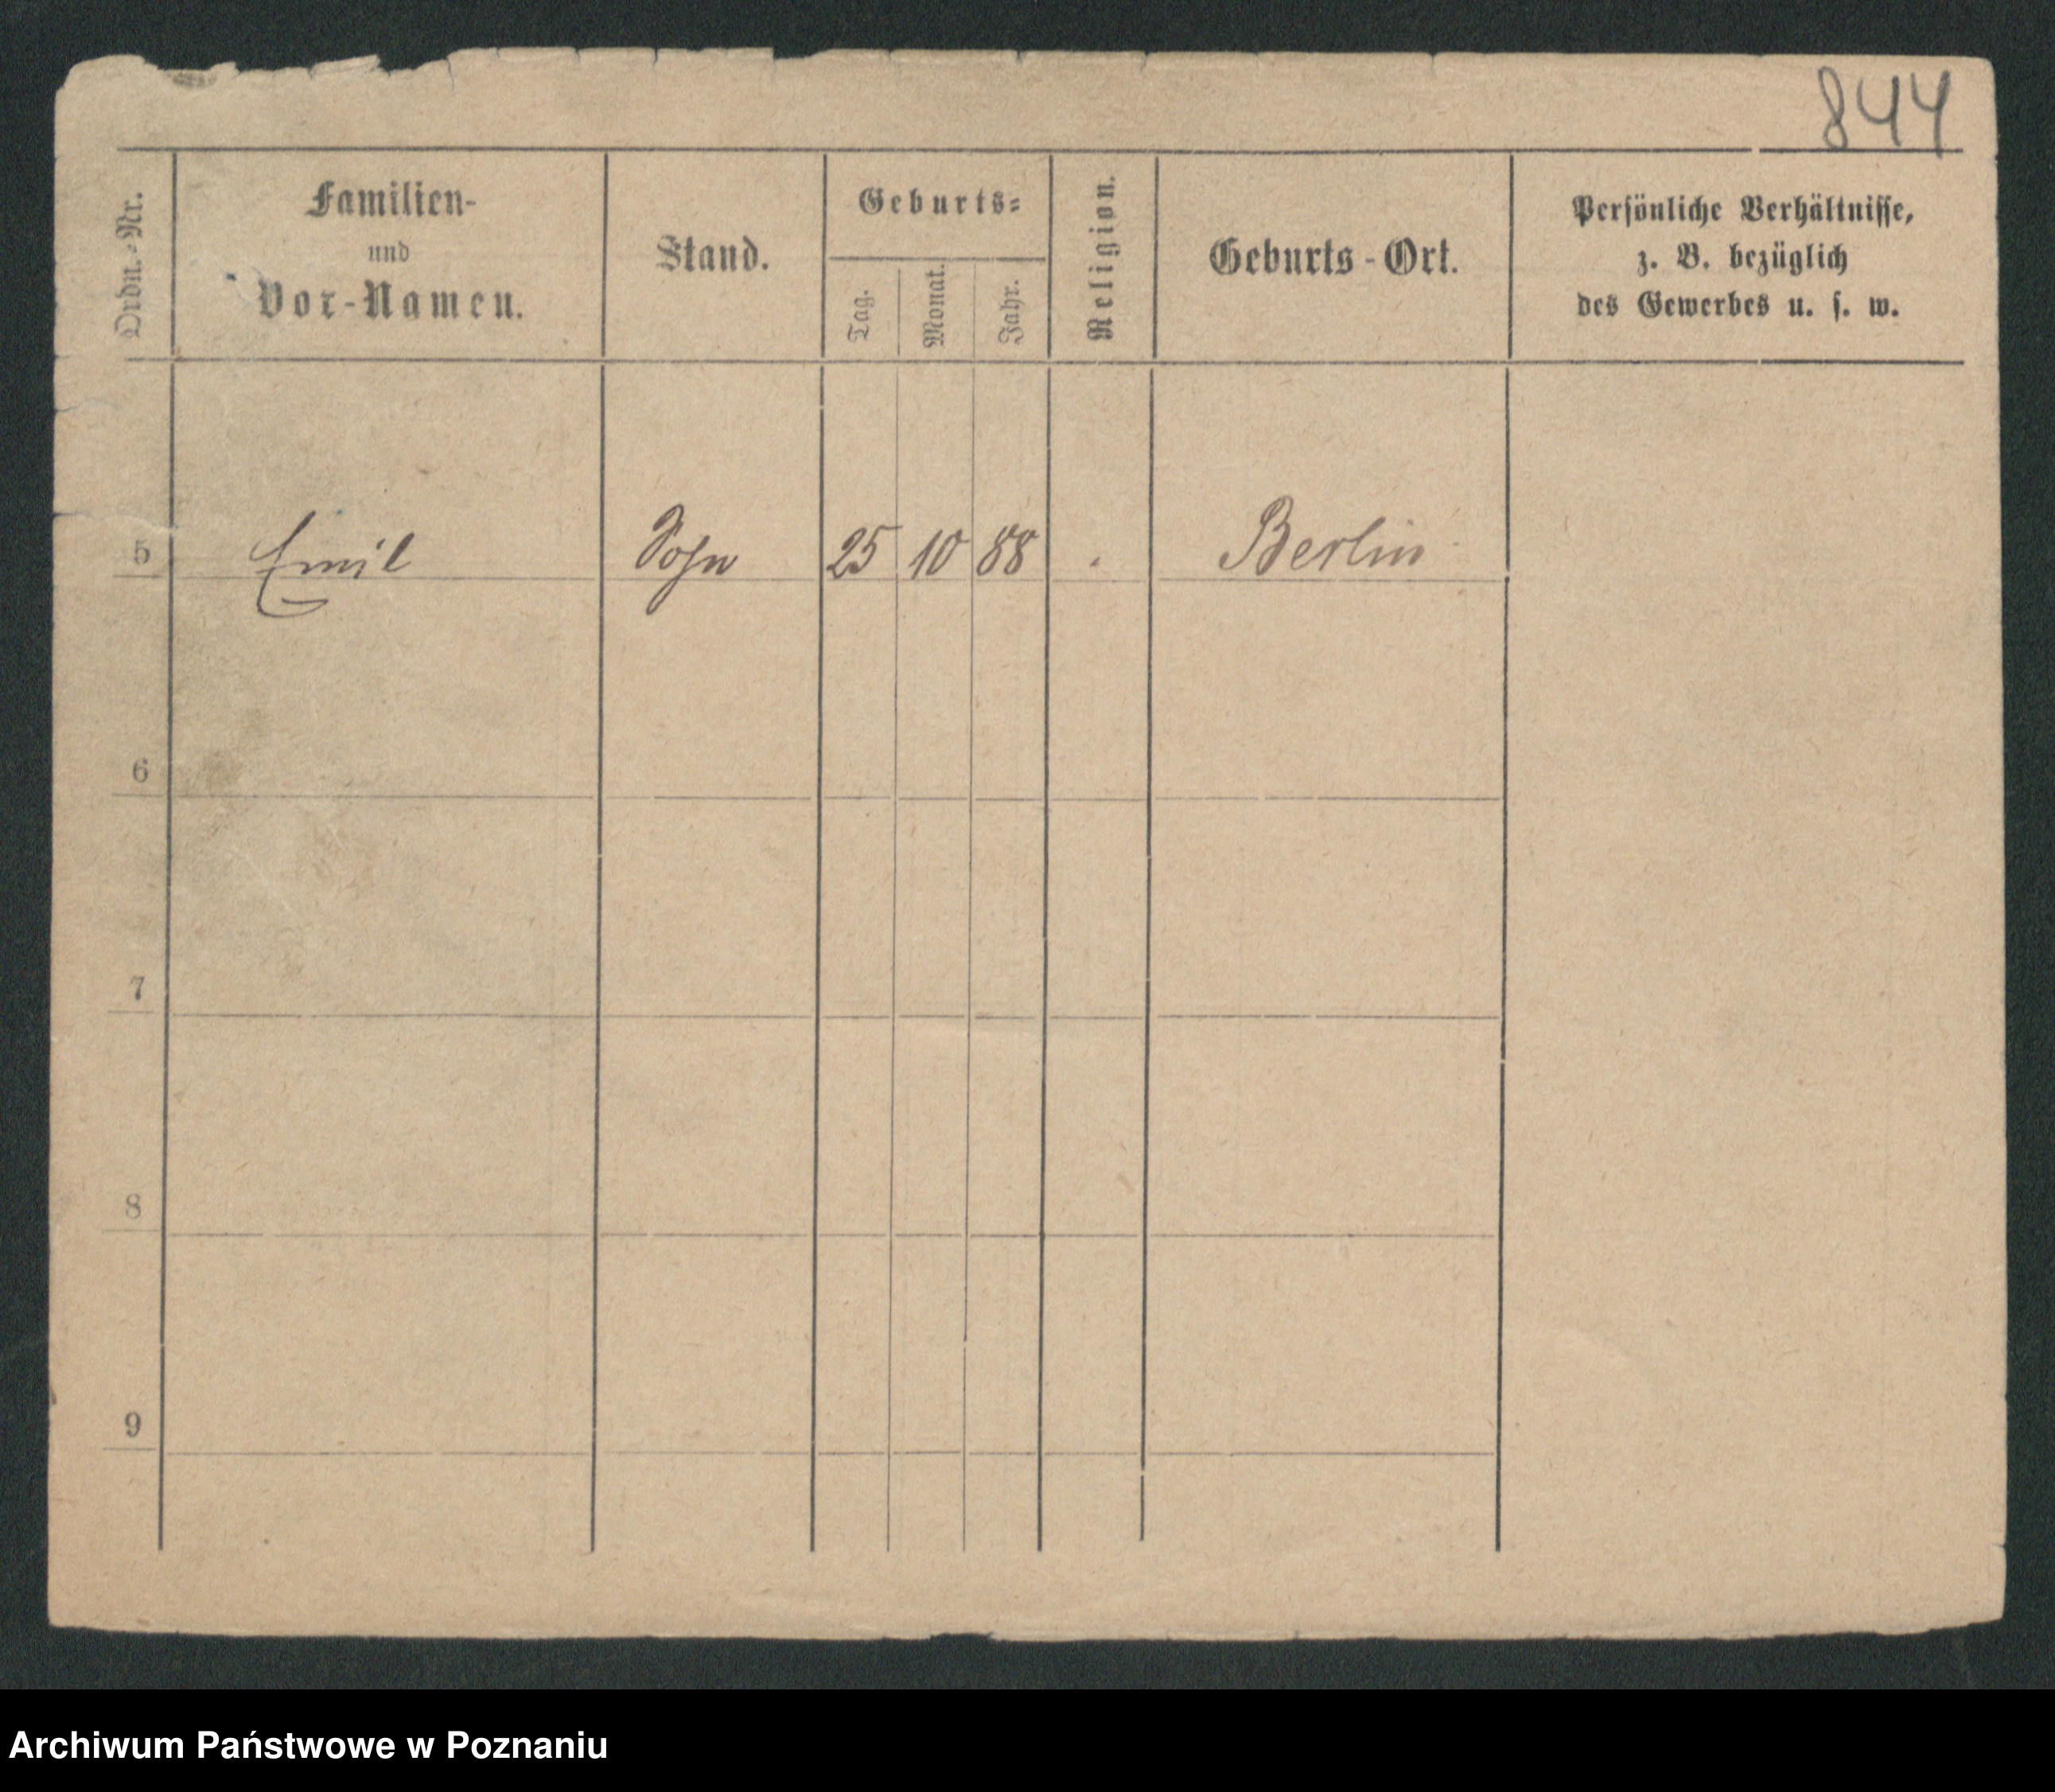 844
Ordn.-Nr.
Familien-
und
Vor-Namen.
Stand.
Geburts-
Tag.
Monat.
Jahr.
Religion.
Geburts-Ort.
Persönliche Verhältnisse,
z. B. bezüglich
des Gewerbes u. s. w.
5 Emil Sohn 25 10 88 . Berlin
6
7
8
9
Archiwum Państwowe w Poznaniu